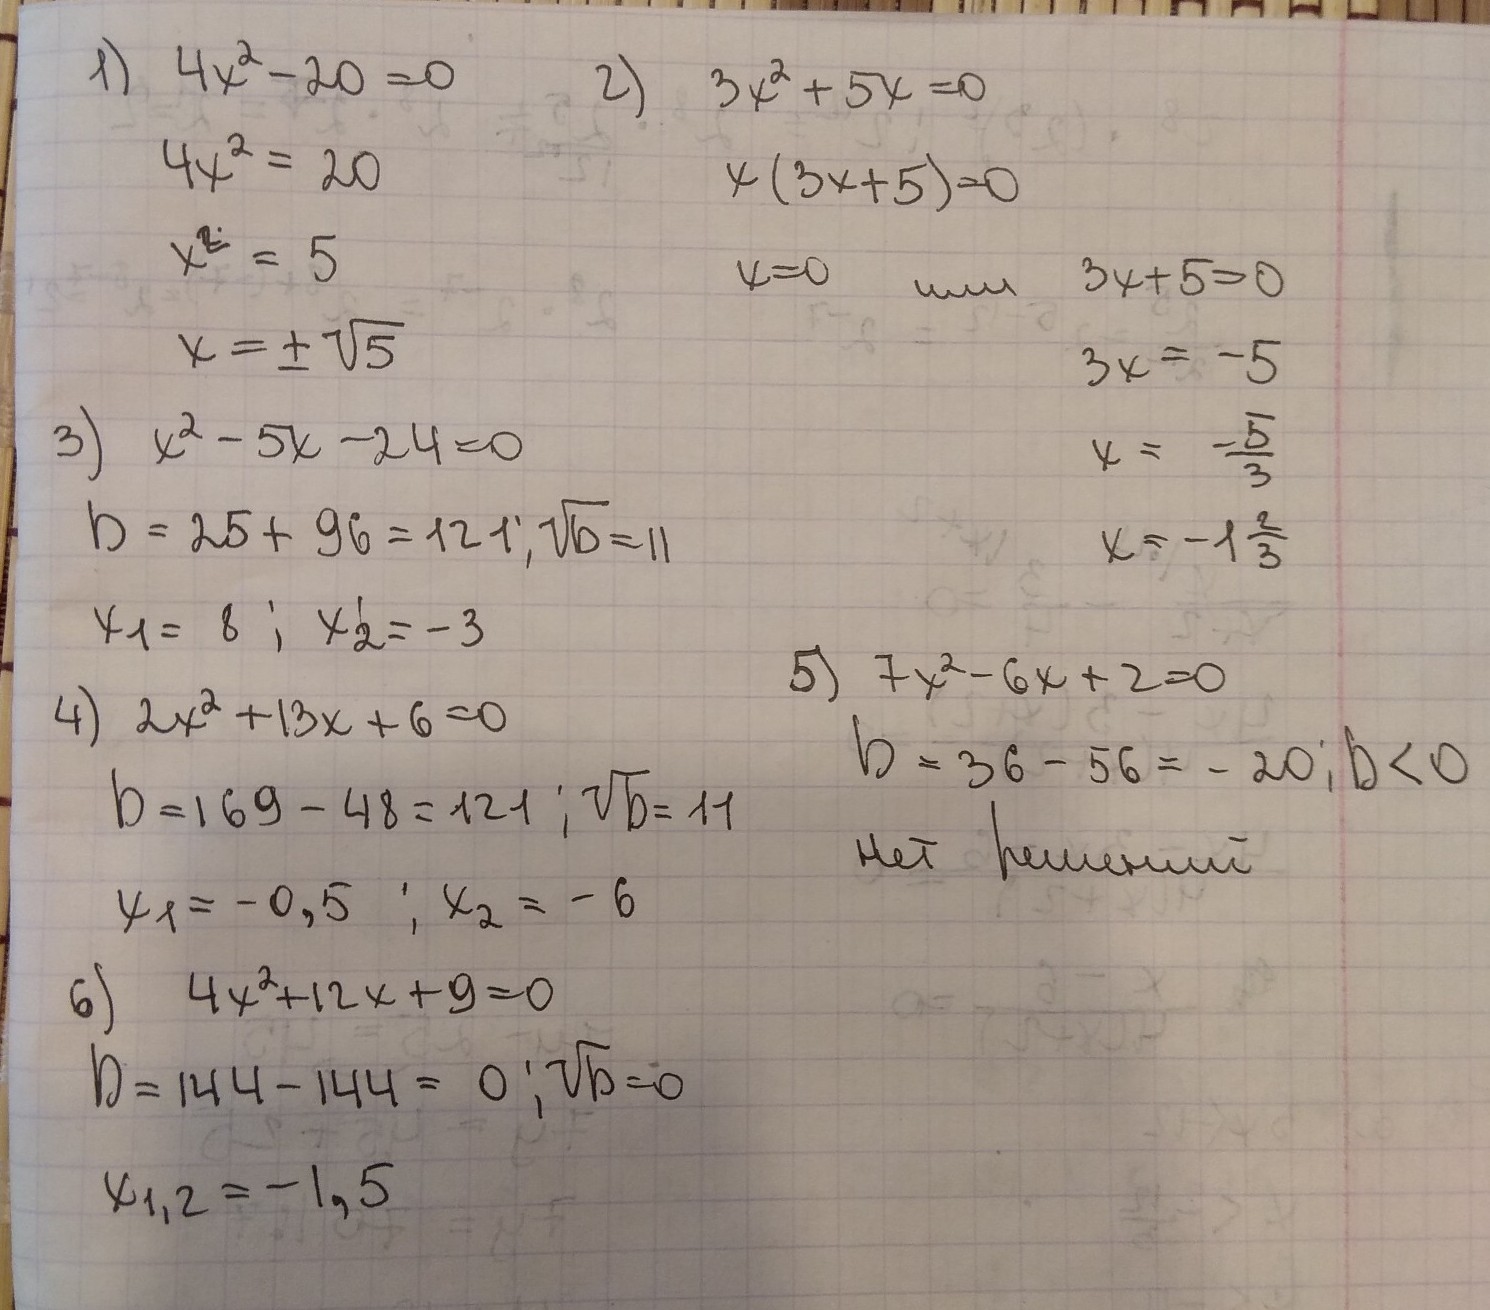 1) 4x² - 20 = 0
4x² = 20
x² = 5
x = ± √5
2) 3x² + 5x = 0
x (3x + 5) = 0
x = 0 или 3x + 5 = 0
3x = -5
x = -5/3
x = -1 2/3
3) x² - 5x - 24 = 0
D = 25 + 96 = 121; √D = 11
x₁ = 8 ; x₂ = -3
4) 2x² + 13x + 6 = 0
D = 169 - 48 = 121 ; √D = 11
x₁ = -0,5 ; x₂ = -6
5) 7x² - 6x + 2 = 0
D = 36 - 56 = -20; D < 0
нет решений
6) 4x² + 12x + 9 = 0
D = 144 - 144 = 0 ; √D = 0
x₁,₂ = -1,5